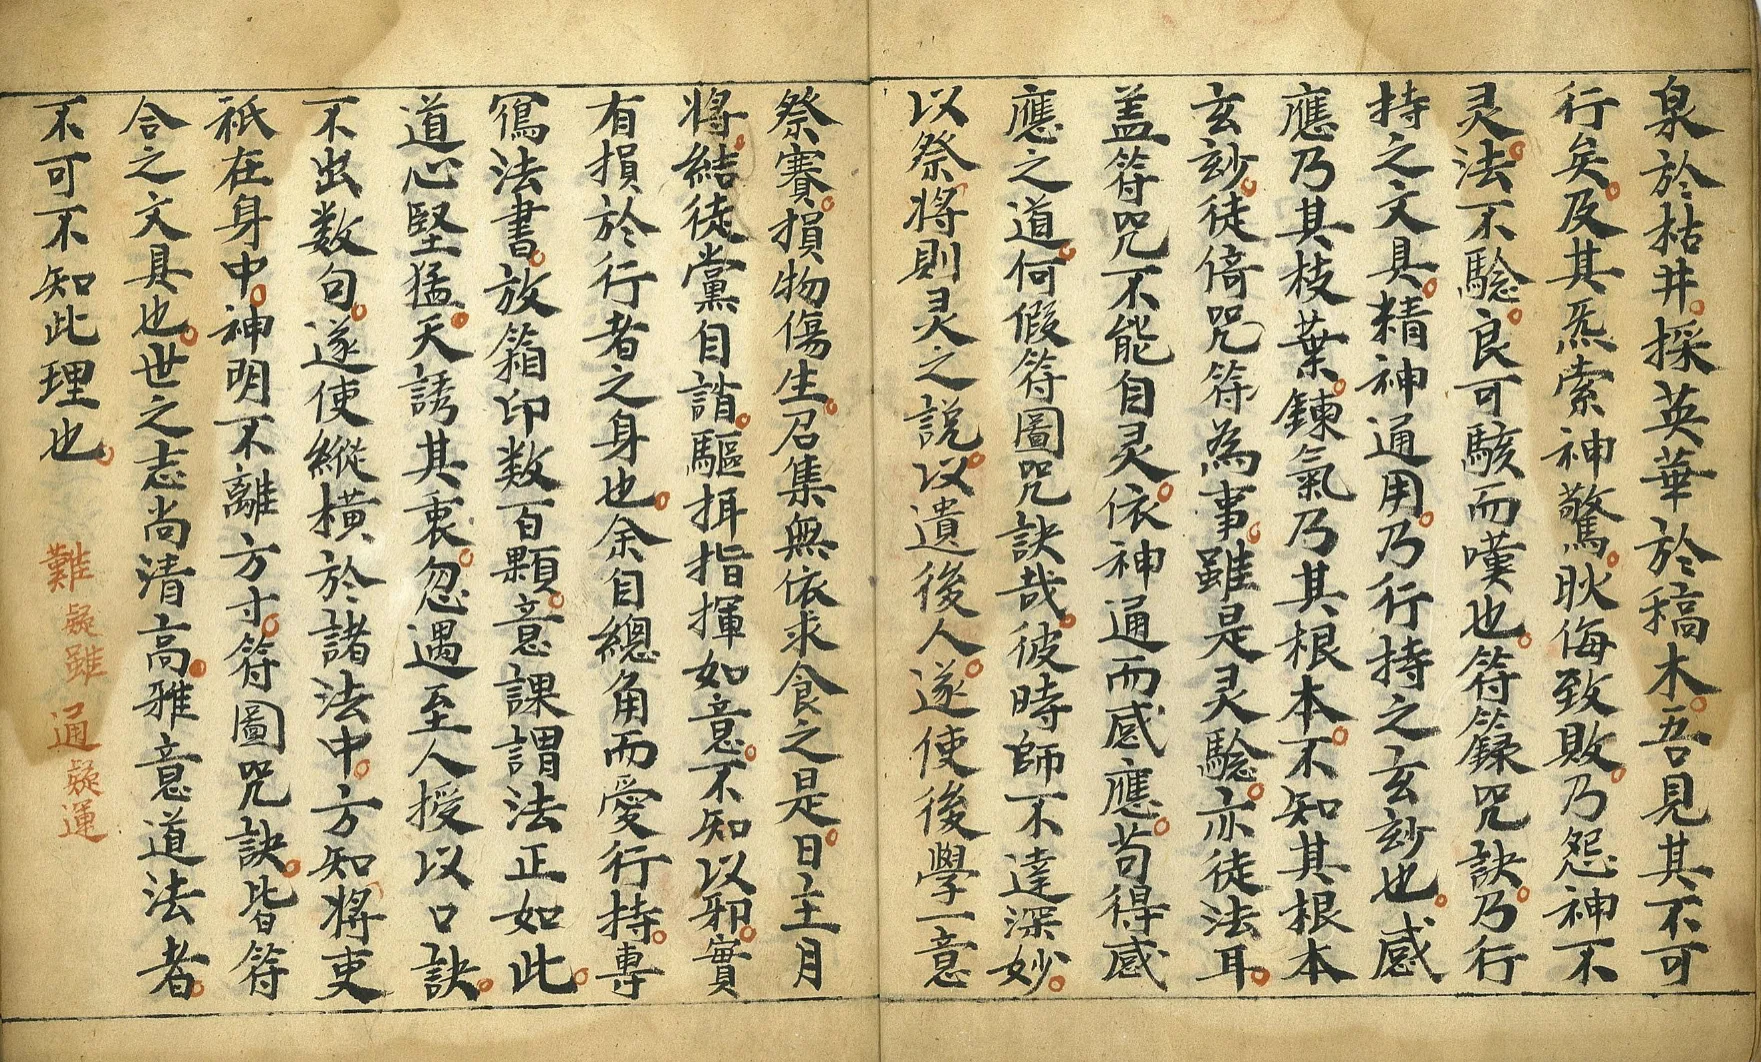 泉於枯井。採英華於稿木。吾見其不可
行矣。及其炁索神驚。耿侮致敗。乃怨神不
灵。法不騐。良可駭而嘆也。符籙咒訣。乃行
持之文具。精神通用。乃行持之玄玅也。感
應乃其枝葉。鍊氣乃其根本。不知其根本
玄玅。徒倚咒符為事。雖是灵騐。亦徒法耳。
盖符咒不能自灵。依神通而感應。苟得感
應之道。何假符圖咒訣哉。彼時師不達深妙。
以祭將則灵之説。以遺後人。遂使後學一意
祭賽。損物傷生。召集無依求食之是。日主月
將。結徒黨自諧。驅抇指揮如意。不知以邪。實
有損於行者之身也。余自總角而愛行持。專
寫法書。放箱印数百顆。意課謂法正如此。
道心堅猛。天誘其衷。忽遇至人授以口訣。
不出数句。遂使縱橫於諸法中。方知將吏
秖在身中。神明不離方寸。符圖咒訣。皆符
合之文具也。世之志尚清高。雅意道法者。
不可不知此理也。
難疑雖 通疑運